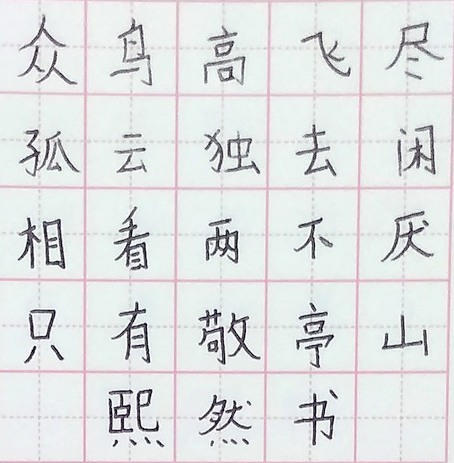 众鸟高飞尽
孤云独去闲
相看两不厌
只有敬亭山
熙然书